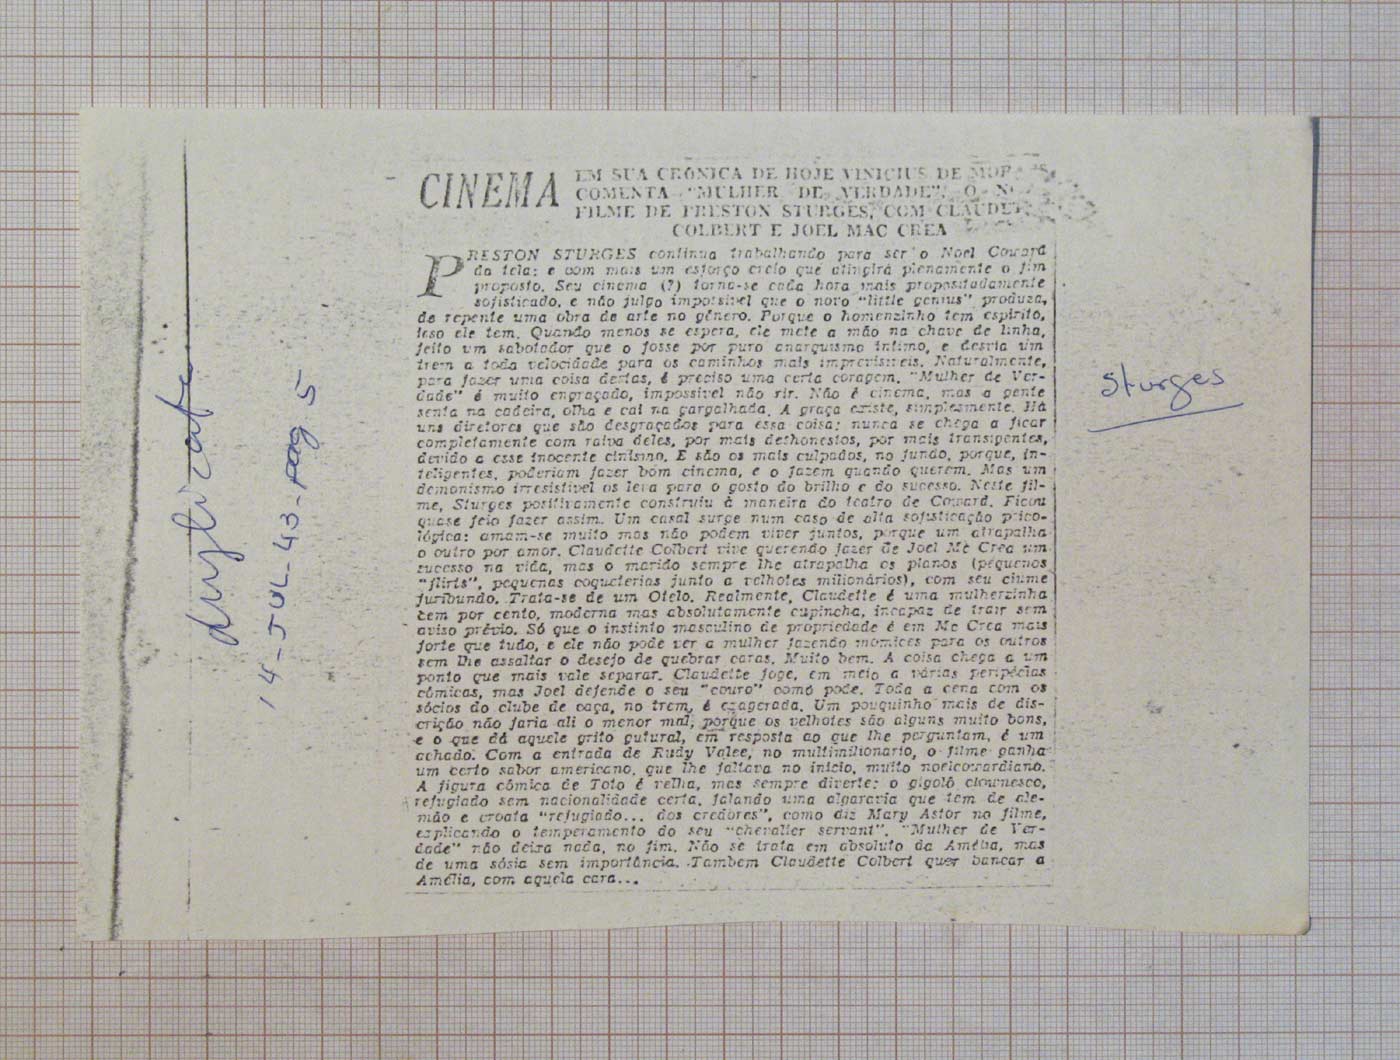 CINEMA
EM SUA CRÔNICA DE HOJE VINICIUS DE
COMENTA "MULHER DE VERDADE", O
FILME DE PRESTON STURGES, COM
COLBERT E JOEL MAC CREA
PRESTON STURGES continua trabalhando para ser o Noel Coward
da tela; e com mais um esforço creio que atingirá plenamente o fim
proposto. Seu cinema (?) torna-se cada hora mais propositadamente
sofisticado, e não julgo impossivel que o novo "little genius" produza,
de repente uma obra de arte no gênero. Porque o homenzinho tem espirito,
isso ele tem. Quando menos se espera, ele mete a mão na chave de linha,
feito um sabotador que o fosse por puro anarquismo intimo, e desvia um
trem a toda velocidade para os caminhos mais imprevisiveis. Naturalmente,
para fazer uma coisa destas, é preciso uma certa coragem. "Mulher de Ver-
dade" é muito engraçado, impossivel não rir. Não é cinema, mas a gente
senta na cadeira, olha e cai na gargalhada. A graça existe, simplesmente. Há
uns diretores que são desgraçados para essa coisa: nunca se chega a ficar
completamente com raiva deles, por mais deshonestos, por mais transigentes,
devido a esse inocente cinismo. E são os mais culpados, no fundo, porque, in-
teligentes, poderiam fazer bom cinema, e o fazem quando querem. Mas um
demonismo irresistivel os leva para o gosto do brilho e do sucesso. Neste fil-
me, Sturges positivamente construiu à maneira do teatro de Coward. Ficou
quase feio fazer assim. Um casal surge num caso de alta sofisticação psico-
lógica: amam-se muito mas não podem viver juntos, porque um atrapalha
o outro por amor. Claudette Colbert vive querendo fazer de Joel Mc Crea um
sucesso na vida, mas o marido sempre lhe atrapalha os planos (pequenos
"flirts", pequenas coqueterias junto a velhotes milionários), com seu ciume
furibundo. Trata-se de um Otelo. Realmente, Claudette é uma mulherzinha
cem por cento, moderna mas absolutamente cupincha, incapaz de trair sem
aviso prévio. Só que o instinto masculino de propriedade é em Mc Crea mais
forte que tudo, e ele não pode ver a mulher fazendo momices para os outros
sem lhe assaltar o desejo de quebrar caras. Muito bem. A coisa chega a um
ponto que mais vale separar. Claudette foge, em meio a várias peripécias
cômicas, mas Joel defende o seu "couro" como pode. Toda a cena com os
sócios do clube de caça, no trem, é exagerada. Um pouquinho mais de dis-
crição não faria ali o menor mal, porque os velhotes são alguns muito bons,
e o que dá aquele grito gutural, em resposta ao que lhe perguntam, é um
achado. Com a entrada de Rudy Valee, no multimilionario, o filme ganha
um certo sabor americano, que lhe faltava no inicio, muito noelcowardiano.
A figura cômica de Toto é velha, mas sempre diverte: o gigolô clownesco,
refugiado sem nacionalidade certa, falando uma algaravia que tem de ale-
mão e croata "refugiado... dos credores", como diz Mary Astor no filme,
explicando o temperamento do seu "chevalier servant". "Mulher de Ver-
dade" não deixa nada, no fim. Não se trata em absoluto da Amélia, mas
de uma sósia sem importância. Tambem Claudette Colbert quer bancar a
Amélia, com aquela cara...
14-JUL-43-pag. 5
Sturges